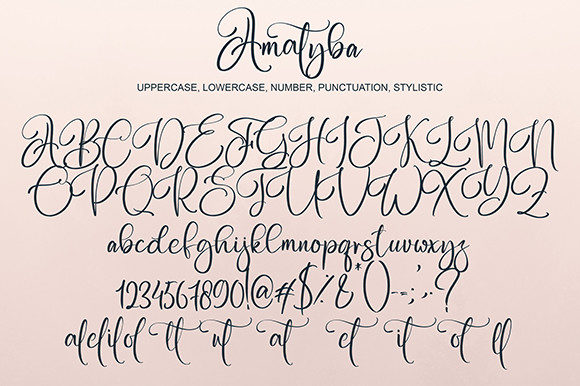 Amatyba
UPPERCASE, LOWERCASE, NUMBER, PUNCTUATION, STYLISTIC
ABCDEFGHIJKLMN
OPQRSTUVWXYZ
abcdefghijklmnopqrstuvwxyz
1234567890!@#$%&*()-_;:,.?
alelilol tt ut at et it ot ll